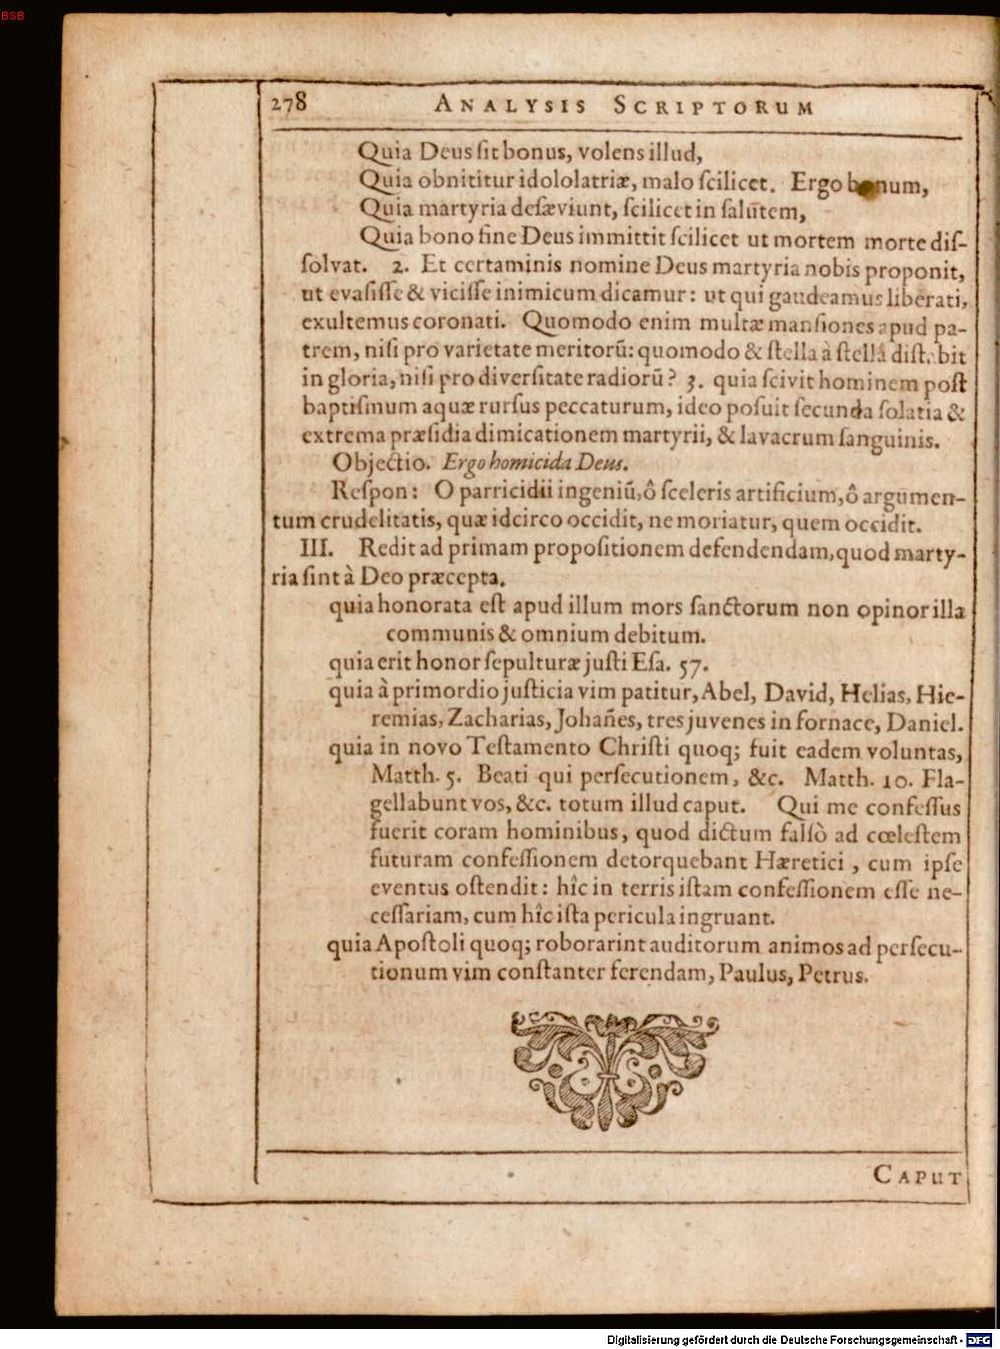 BSB
278 ANALYSIS SCRIPTORUM
Quia Deus sit bonus, volens illud,
Quia obnititur idololatriæ, malo scilicet. Ergo bonum,
Quia martyria desæviunt, scilicet in salutem,
Quia bono fine Deus immittit scilicet ut mortem morte dis-
solvat. 2. Et certaminis nomine Deus martyria nobis proponit,
ut evasisse & vicisse inimicum dicamur: ut qui gaudeamus liberati,
exultemus coronati. Quomodo enim multæ mansiones apud pa-
trem, nisi pro varietate meritorũ: quomodo & stella à stellâ distabit
in gloria, nisi pro diversitate radiorũ? 3. quia scivit hominem post
baptismum aquæ rursus peccaturum, ideo posuit secunda solatia &
extrema præsidia dimicationem martyrii, & lavacrum sanguinis.
Objectio. Ergo homicida Deus.
Respon: O parricidii ingeniũ, ô sceleris artificium, ô argumen-
tum crudelitatis, quæ idcirco occidit, ne moriatur, quem occidit.
III. Redit ad primam propositionem defendendam, quod marty-
ria sint à Deo præcepta.
quia honorata est apud illum mors sanctorum non opinor illa
communis & omnium debitum.
quia erit honor sepulturæ justi Esa. 57.
quia à primordio justicia vim patitur, Abel, David, Helias, Hie-
remias, Zacharias, Johañes, tres juvenes in fornace, Daniel.
quia in novo Testamento Christi quoq; fuit eadem voluntas,
Matth. 5. Beati qui persecutionem, &c. Matth. 10. Fla-
gellabunt vos, &c. totum illud caput. Qui me confessus
fuerit coram hominibus, quod dictum falsò ad cœlestem
futuram confessionem detorquebant Hæretici, cum ipse
eventus ostendit: hîc in terris istam confessionem esse ne-
cessariam, cum hîc ista pericula ingruant.
quia Apostoli quoq; roborarint auditorum animos ad persecu-
tionum vim constanter ferendam, Paulus, Petrus.
CAPUT
Digitalisierung gefördert durch die Deutsche Forschungsgemeinschaft - DFG